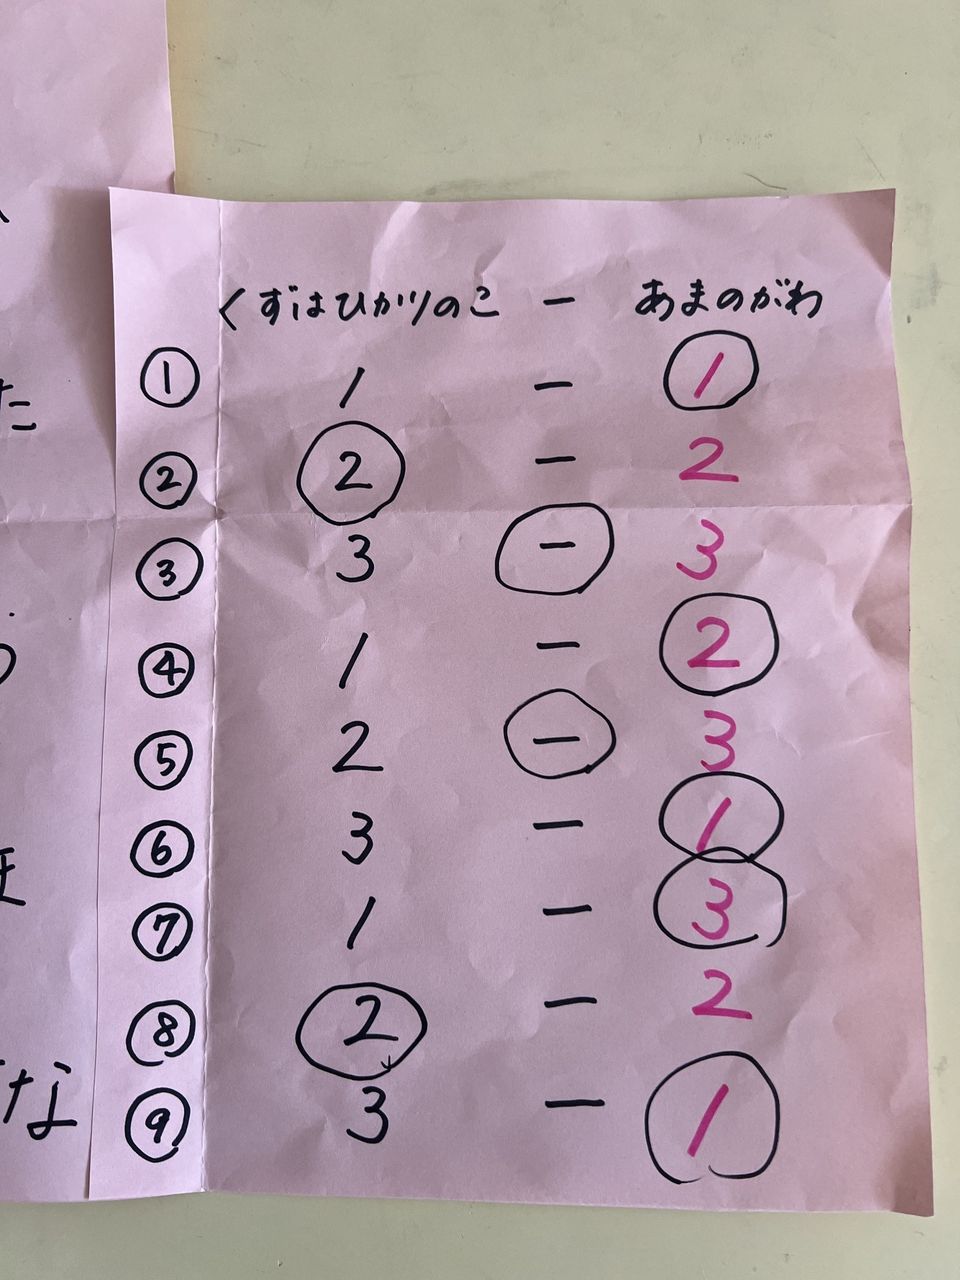 くずはひかりのこ ー あまのがわ
① 1 ー 1
② 2 ー 2
③ 3 ー 3
④ 1 ー 2
⑤ 2 ー 3
⑥ 3 ー 1
⑦ 1 ー 3
⑧ 2 ー 2
⑨ 3 ー 1
た
な